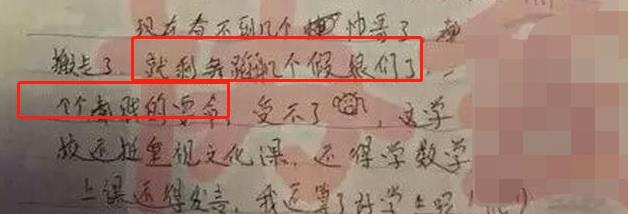 现在看不到几个帅哥了
搬走了，就剩
几个假娘们了，一
个个骚的要命，受不了，这学
校还挺重视文化课，还得学数学
上课还得发言，我还算了好学生呢！